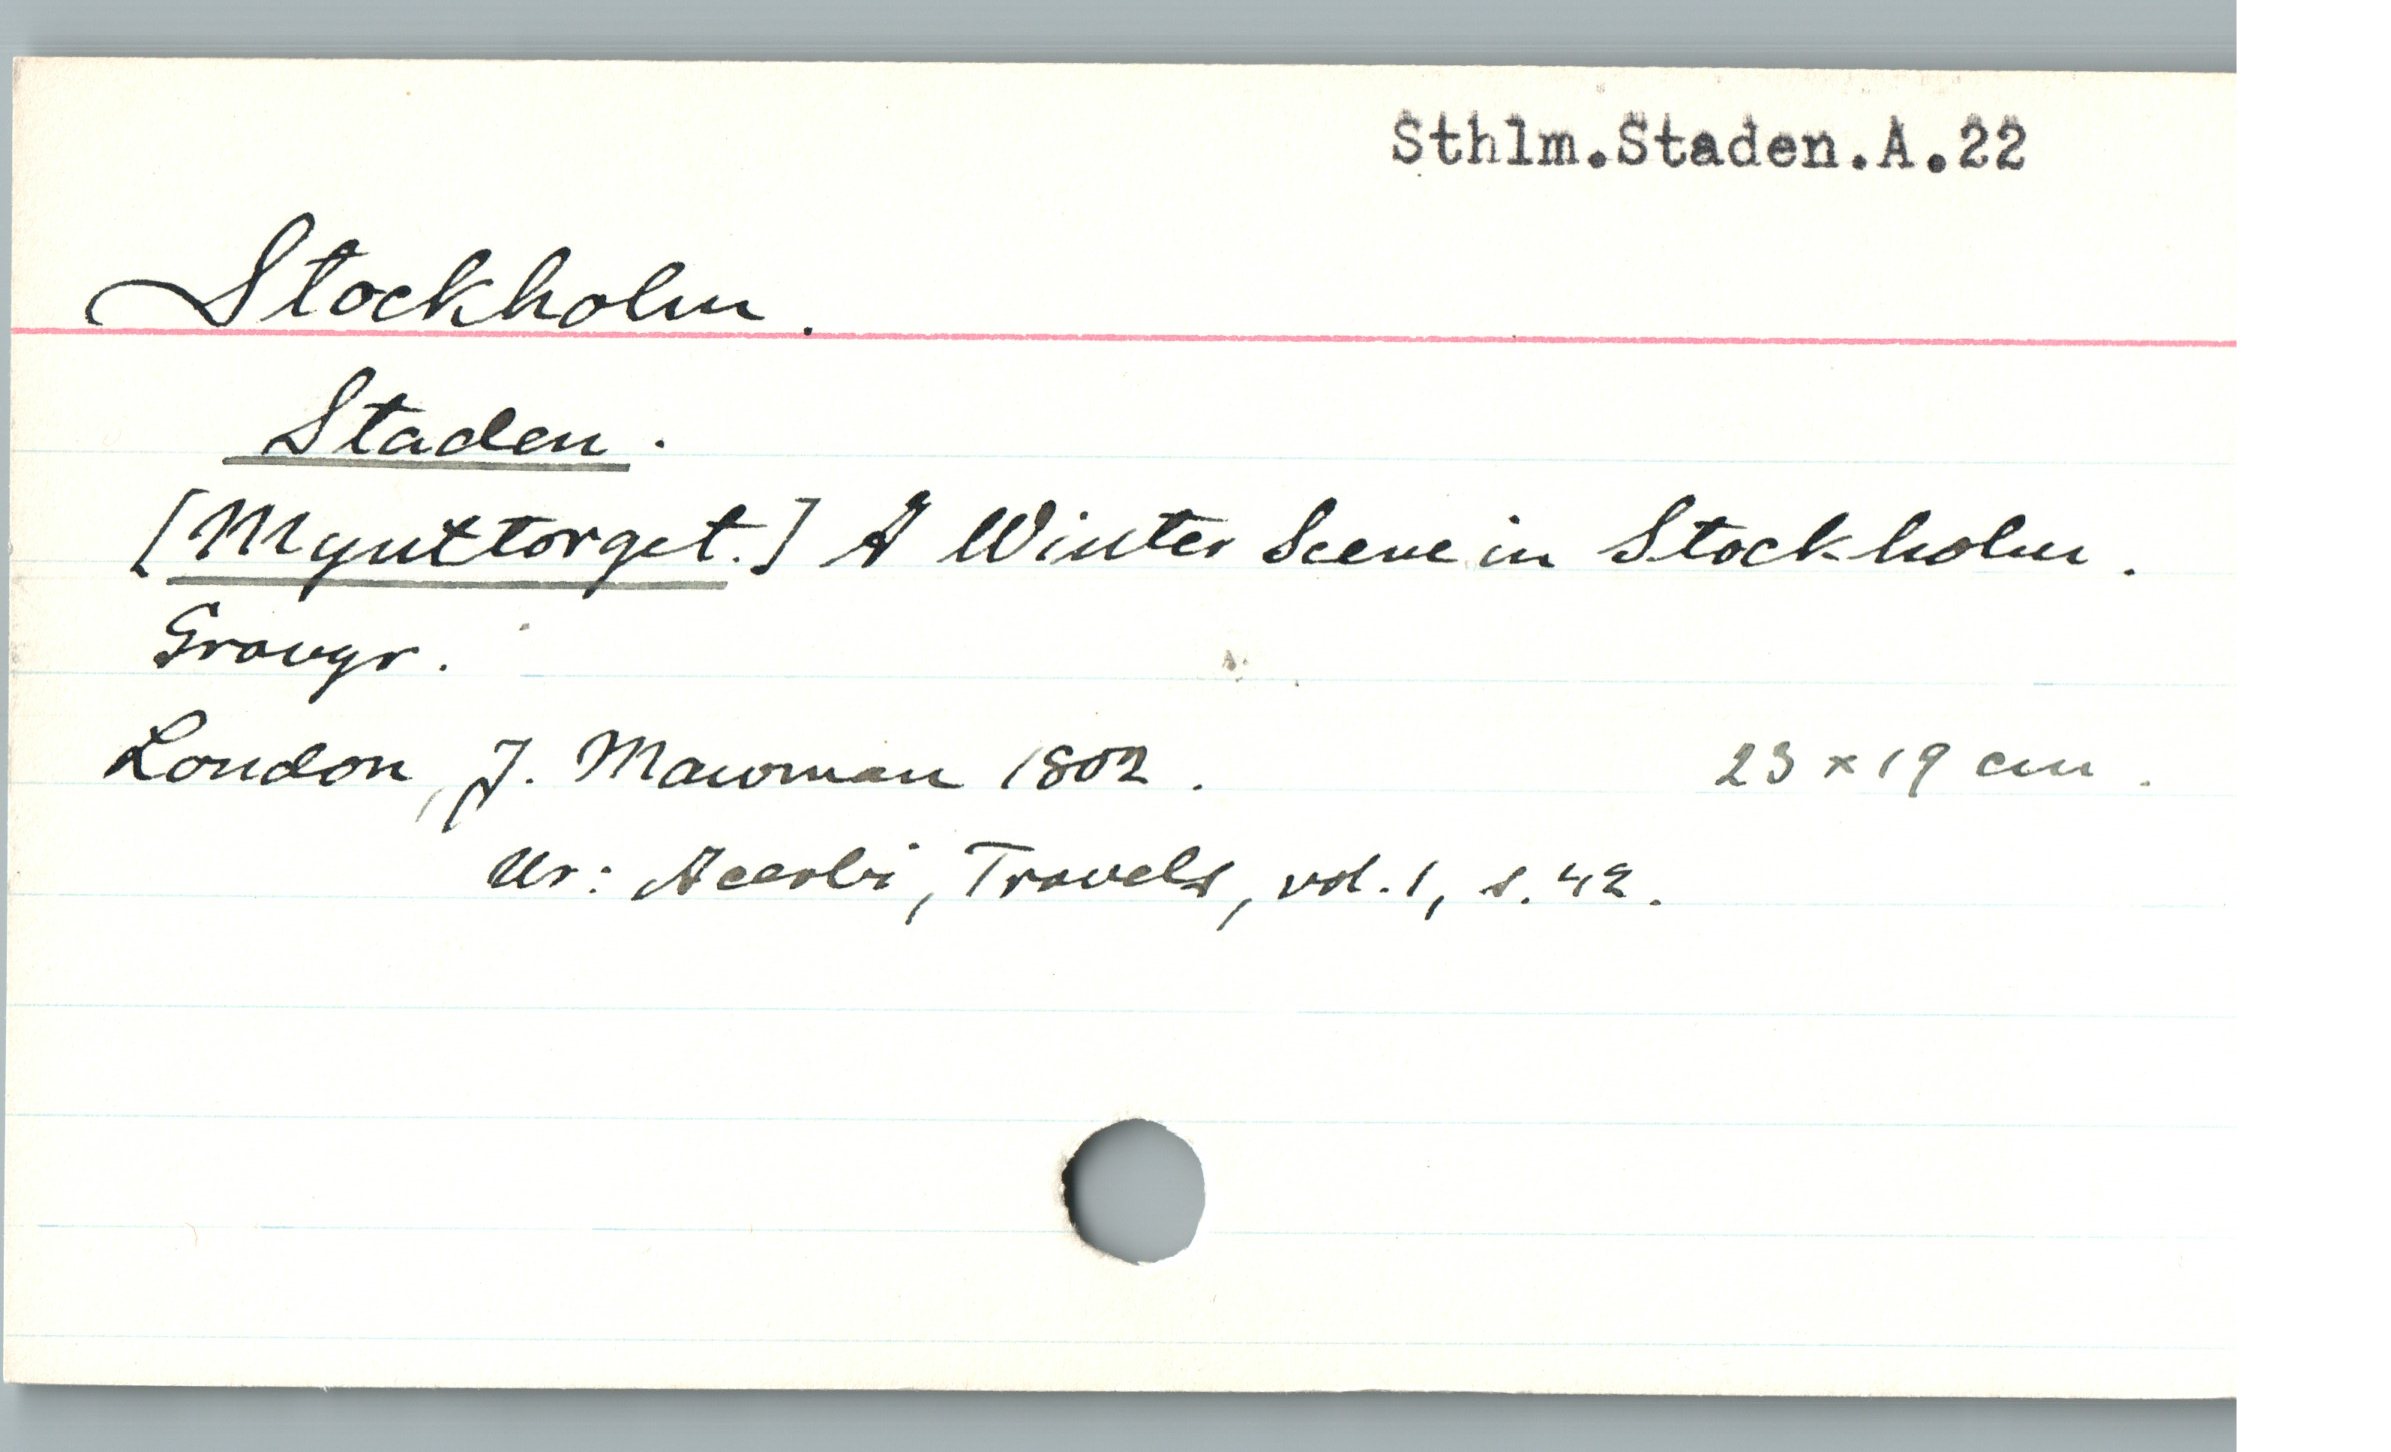 Sthlm.Staden.A.22
Stockholm.
Staden.
[Mynttorget.] A Winter Scene in Stockholm.
Gravyr.
London, J. Mawman 1802. 23 x 19 cm.
Ur: Acerbi, Travels, vol. 1, s. 42.